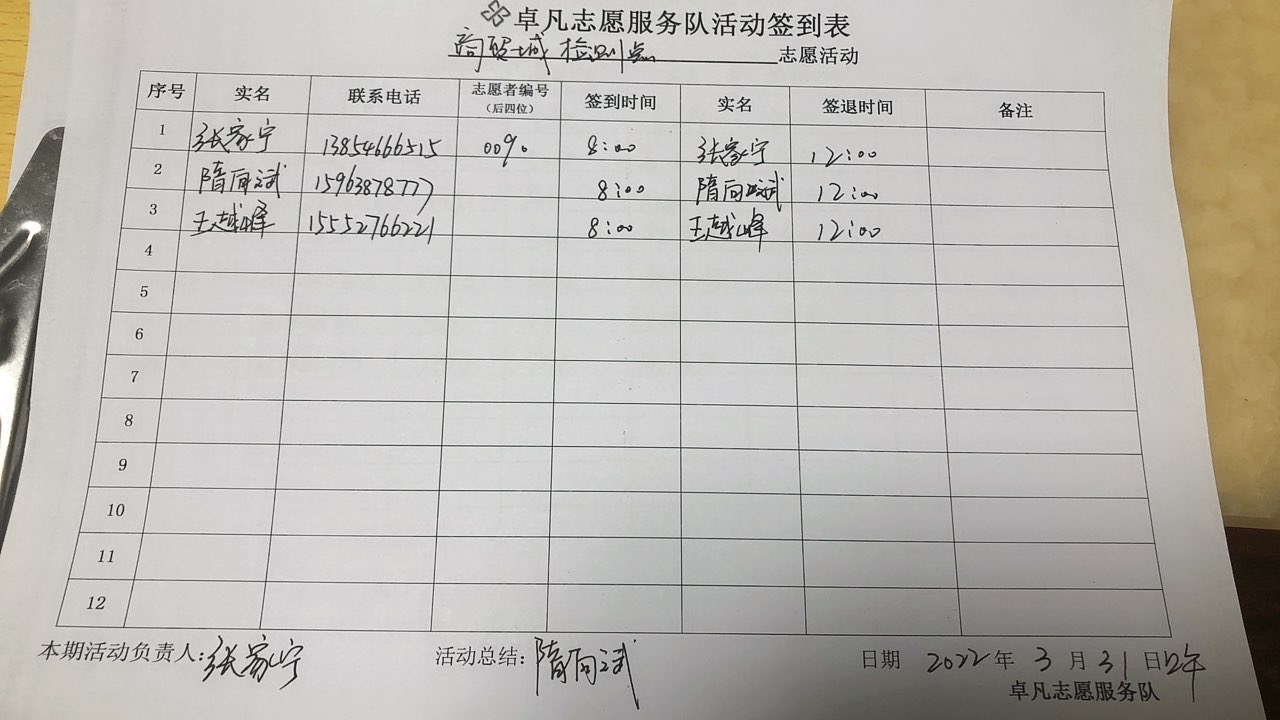 卓凡志愿服务队活动签到表
商贸城 检测点 志愿活动
序号 实名 联系电话 志愿者编号(后四位) 签到时间 实名 签退时间 备注
1 张家宁 13854666515 0090 8:00 张家宁 12:00
2 隋向斌 15963878777 8:00 隋向斌 12:00
3 王越峰 15552766221 8:00 王越峰 12:00
4
5
6
7
8
9
10
11
12
本期活动负责人:张家宁 活动总结:隋向斌 日期 2022年3月31日
卓凡志愿服务队